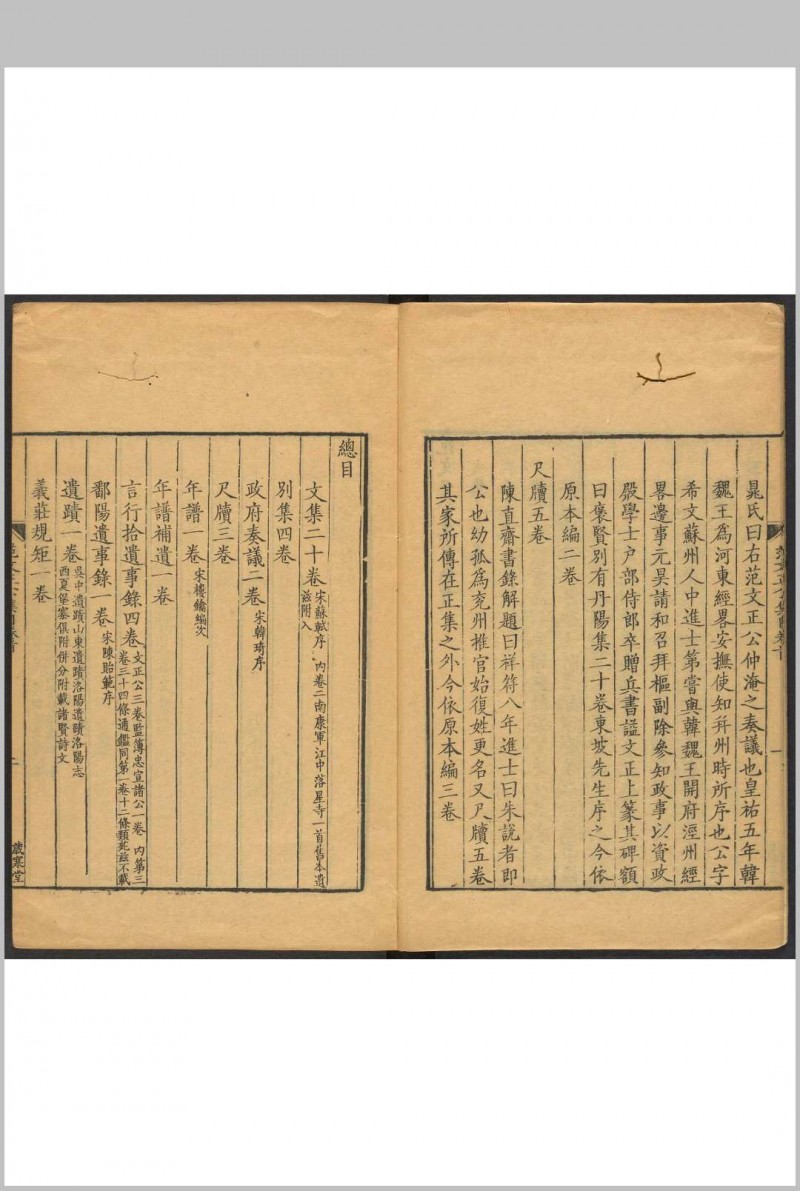 晁氏曰右范文正公仲淹之奏議也皇祐五年韓
魏王爲河東經畧安撫使知并州時所序也公字
希文蘇州人中進士第嘗與韓魏王開府涇州經
畧邊事元昊請和召拜樞副除參知政事以資政
殿學士户部侍郎卒贈兵書謚文正上篆其碑額
曰褒賢别有丹陽集二十卷東坡先生序之今依
原本編二卷
尺牘五卷
陳直齋書錄解題曰祥符八年進士曰朱說者即
公也幼孤爲兖州推官始復姓更名又尺牘五卷
其家所傳在正集之外今依原本編三卷
總目
文集二十卷宋蘇軾序 内卷二南康軍江中落星寺一首舊本遺
兹附入
别集四卷
政府奏議二卷宋韓琦序
尺牘三卷
年譜一卷宋樓鑰編次
年譜補遺一卷
言行拾遺事錄四卷文正公三卷監簿忠宣諸公一卷 内第三
卷三十四條通鑑同第一卷十二條類死兹不載
鄱陽遺事錄一卷宋陳貽範序
遺蹟一卷吳中遺蹟山東遺蹟洛陽遺蹟洛陽志
西夏堡寨俱附併分附載諸賢詩文
義莊規矩一卷
歲寒堂